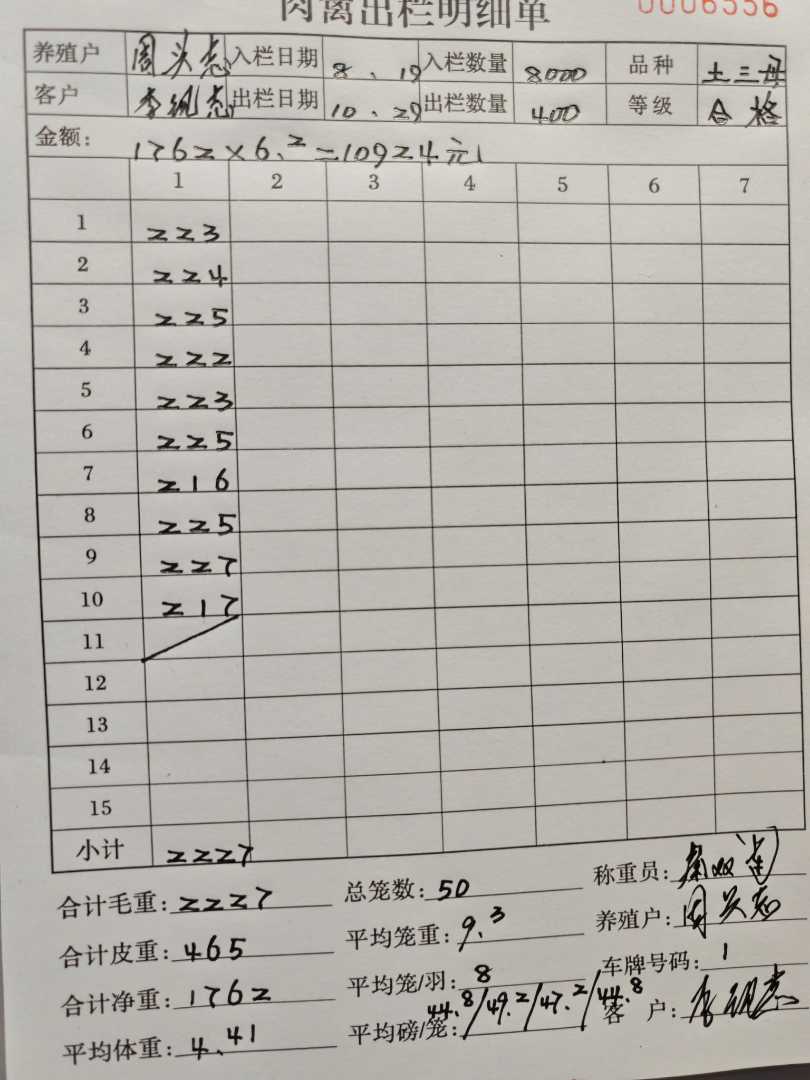 肉禽出栏明细单 0006556
养殖户 周头志 入栏日期 8.19 入栏数量 8000 品种 土三母
客户 李佩志 出栏日期 10.29 出栏数量 400 等级 合格
金额: 1762×6.2=10924元
1 2 3 4 5 6 7
1 223
2 224
3 225
4 222
5 223
6 225
7 216
8 225
9 227
10 217
11
12
13
14
15
小计 2227
合计毛重: 2227 总笼数: 50 称重员:
合计皮重: 465 平均笼重: 9.3 养殖户: 周头志
合计净重: 1762 平均笼/羽: 8 车牌号码: 1
平均体重: 4.41 平均磅/笼: 44.8/49.2/47.2/44.8 客户: 李佩志